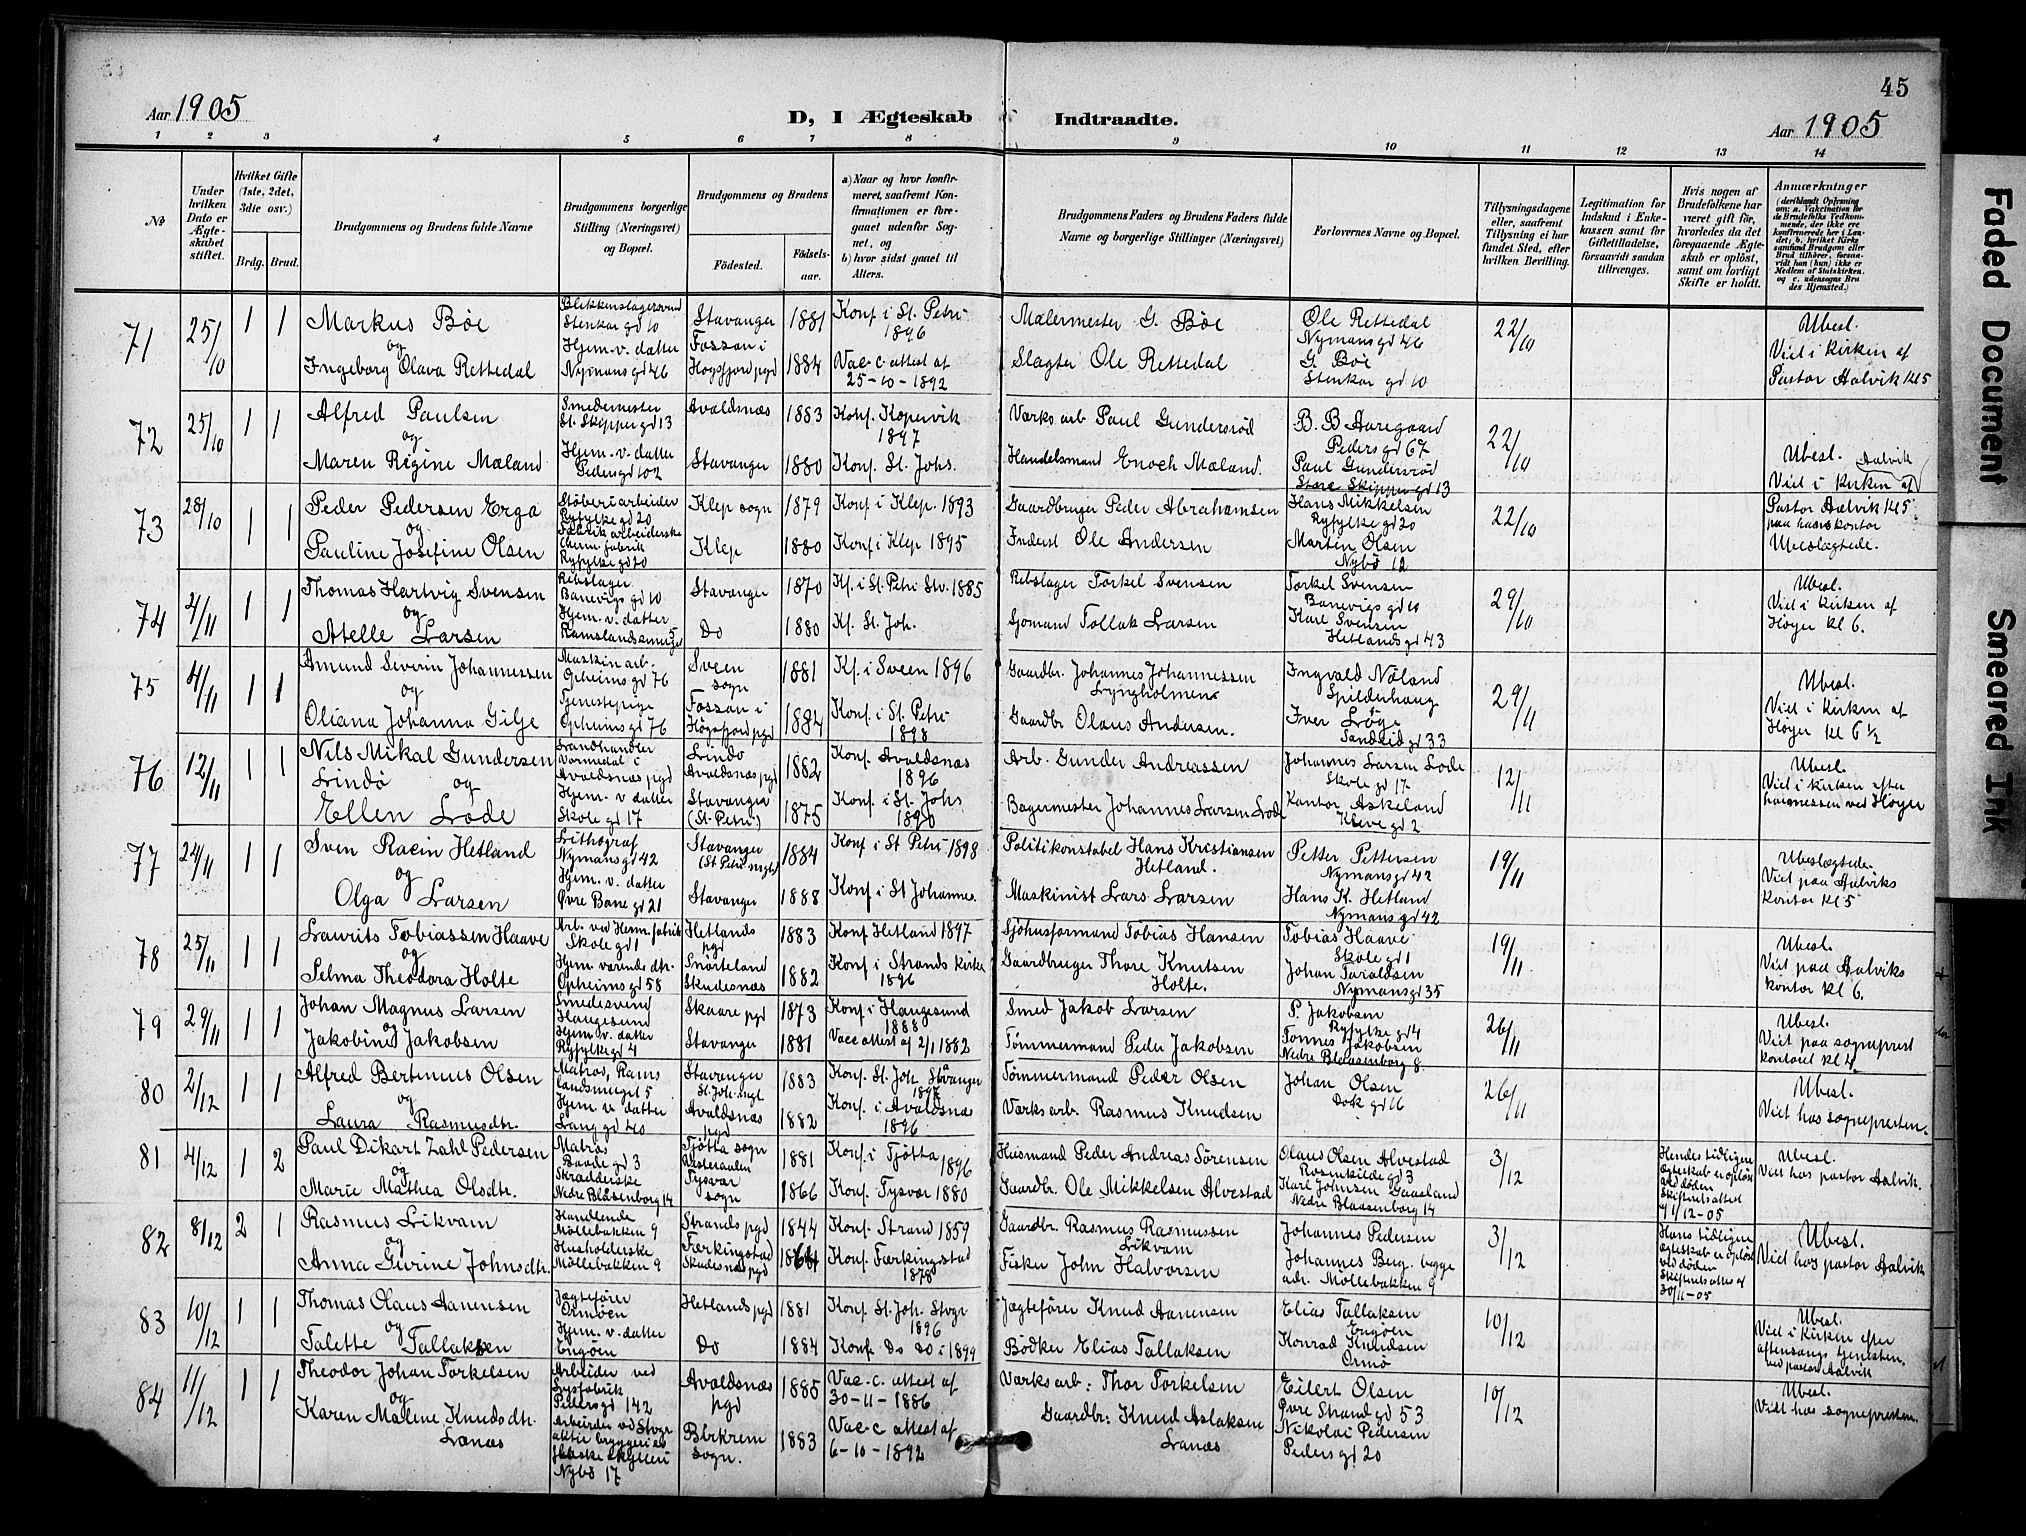 45
Aar 1905
D, I Ægteskab Indtraadte.
Aar 1905
1 2 3 4 5 6 7 8 9 10 11 12 13 14
No
Under hvilken Dato er Ægteskabet stiftet.
Hvilket Gifte (1ste, 2det, 3die osv.)
Brdg. Brud.
Brudgommens og Brudens fulde Navne
Brudgommens borgerlige Stilling (Næringsvei) og Bopæl.
Brudgommens og Brudens
Fødested.
Fødselsaar.
a) Naar og hvor konfirmeret, saafremt Konfirmationen er foregaaet udenfor Sognet, og
b) hvor sidst gaaet til Alters.
Brudgommens Faders og Brudens Faders fulde Navne og borgerlige Stillinger (Næringsvei)
Forlovernes Navne og Bopæl.
Tillysningsdagene eller, saafremt Tillysning ei har fundet Sted, efter hvilken Bevilling.
Legitimation for Indskud i Enkekassen samt for Giftetilladelse, forsaavidt saadan tiltrænges.
Hvis nogen af Brudefolkene har været gift før, hvorledes da det foregaaende Ægteskab er opløst, samt om lovligt Skifte er holdt.
Anmærkninger
(deriblandt Oplysning om: a. Vakcination for de Brudefolks Vedkommende, der ikke ere konfirmerede her i Landet; b. hvilket Kirkesamfund Brudgom eller Brud tilhører, forsaavidt han (hun) ikke er Medlem af Statskirken, og c. udensogns Brudes Hjemsted.)
71 25/10 1 1 Markus Bøe
og
Ingeborg Olava Rettedal
Blikkenslagersvend
Stenkar gd 10
Hjem. v. datter
Nymans gd 46
Stavanger 1881
Fossan i
Høgsfjord pgd 1884
Konf i St. Petri
1896
Vac-c. attest af
25-10-1892
Malermester G. Bøe
Slagter Ole Rettedal
Ole Rettedal
Nymans gd 46
G. Bøe
Stenkar gd 10
22/10
Ubesl.
Viet i kirken af
Pastor Aalvik kl 5
72 25/10 1 1 Alfred Paulsen
og
Maren Regine Mæland
Smedemester
St. Skipper gd 13
Hjem. v. datter
Peders gd 102
Avaldsnæs 1883
Stavanger 1880
Konf. Kopervik
1897
Konf. St. Johs.
Værks arb Paul Gundersrød
Handelsmand Enoch Mæland.
B. B Aaregaard
Peders gd 67
Paul Gundersrød
Store Skipper gd 13
22/10
Ubesl.
Viet i kirken af Aalvik
73 28/10 1 1 Peder Pedersen Erga
og
Pauline Josefine Olsen
Støberiarbeider
Ryfylke gd 20
Fabrik arbeiderske
Ryfylke gd 20
Klep sogn 1879
Klep 1880
Konf i Klep. 1893
Konf i Klep 1895
Gaardbruger Peder Abrahamsen
Inderst Ole Andersen
Hans Mikkelsen
Ryfylke gd 20
Martin Olsen
Nybø 12
22/10
Pastor Aalvik kl 5
paa hans kontor
Ubeslægtede.
74 2/11 1 1 Thomas Hartvig Svensen
og
Atelle Larsen
Rebslager
Banevigs gd 10
Hjem. v. datter
Ramslandsmuget 5
Stavanger 1870
Do 1880
Kf. i St. Petri Stv. 1885
Kf. St. Joh.
Rebslager Torkel Svensen
Sjømand Tollak Larsen
Torkel Svensen
Banevigs gd 10
Karl Svensen
Hetlands gd 43
29/10
Ubesl.
Viet i kirken af
Høyer kl 6.
75 4/11 1 1 Amund Severin Johannessen
og
Oliana Johanna Gilje
Maskin arb.
Opheims gd 76
Tjenestepige
Opheims gd 76
Sveen
sogn 1881
Fossan i
Høgsfjord pgd 1884
Kf. i Sveen 1896
Konf. i St. Petri
1898
Gaardbr. Johannes Johannessen
Lyngholmen
Gaardbr Olaus Andersen.
Ingvald Nøland
Spilderhaug
Iver Løge
Sandeid gd 33
29/11
Ubesl.
Viet i kirken af
Høyer kl 6 1/2
76 12/11 1 1 Nils Mikal Gundersen
Lindø og
Ellen Lode
Landhandler
Avaldsnæs pgd
Hjem. v datter
Skole gd 17
Lindø
Avaldsnæs pgd 1882
Stavanger
(St. Petri) 1875
Konf. Avaldsnæs
1896
Konf. i St. Johs
1890
Arb. Gunder Andreassen
Bagermester Johannes Larsen Lode
Johannes Larsen Lode
Skole gd 17.
Kantor Askeland
Kleve gd 2
12/11
Ubesl.
Viet i kirken efter
høimessen ved Høyer
77 24/11 1 1 Sven Racin Hetland
og
Olga Larsen
Lithograf
Nymans gd 42
Hjem. v. datter
Øvre Bane gd 21
Stavanger
(St Petri mgh) 1884
Stavanger 1888
Konf i St Petri 1898
Konf i St Johannes.
Politikonstabel Hans Kristiansen
Hetland.
Maskinist Lars Larsen
Petter Pettersen
Nymans gd 42
Hans K. Hetland
Nymans gd 42
19/11
Ubeslægtede.
Viet paa Aalviks
kontor kl 5
78 25/11 1 1 Laurits Tobiassen Haave
og
Selma Theodora Holte
Arb. ved Herm. fabrik
Skole gd 1
Hjem værende dtr.
Opheims gd 58
Hetlands
pgd 1883
Snørteland
Skudesnæs 1882
Konf Hetland 1897
Konf i Strands kirke
1896
Sjøhusformand Tobias Hansen
Gaardbruger Thore Knutsen
Holte.
Tobias Haave
Skole gd 1
Johan Taraldsen
Nymans gd 35
19/11
Ubesl.
Viet paa Aalviks
kontor kl 6.
79 29/11 1 1 Johan Magnus Larsen
og
Jakobine Jakobsen
Smedesvend
Haugesund
Hjem v. datter
Ryfylke gd 4
Skaare pgd 1873
Stavanger 1881
Konf i Haugesund
1888
Vacc attest af 2/1 1882
Smed Jakob Larsen
Tømmermand Peder Jakobsen
P. Jakobsen
Ryfylke gd 4
Tønnes Jakobsen
Nedre Blaasenborg 8
26/11
Ubesl.
Viet paa sogneprest
kontoret kl 4.
80 2/12 1 1 Alfred Bertinius Olsen
og
Laura Rasmusdtr.
Matros, Rams
landsmuget 5
Hjem v datter
Lang gd 40
Stavanger
St. Joh. mgt. 1883
Avaldsnæs
pgd 1882
Konf. St. Joh Stavanger
1897
Konf. i Avaldsnæs
1896
Tømmermand Peder Olsen
Værks arb. Rasmus Knudsen
Johan Olsen
Dok gd 16
26/11
Ubesl.
Viet hos sognepresten.
81 4/12 1 2 Paul Dikart Zahl Pedersen
og
Marie Mathea Olsdtr.
Matros
gd 3
Skrædderske
Nedre Blåsenborg 14
Tjøtta sogn
Vesteraalen 1881
Tysvær
sogn 1866
Konf. i Tjøtta 1896
Konf. Tysvær 1880
Husmand Peder Andreas Sørensen
Gaardbr. Ole Mikkelsen Alvestad
Olaus Olsen Alvestad
Rosenkilde gd 3
Karl Johnsen Gaasland
Nedre Blaasenborg 14
3/12
Hendes tidligere
ægteskab er opløst
ved døden
Skifteretsattest
af 1/12-05
Ubesl.
Viet hos pastor Aalvik.
82 8/12 2 1 Rasmus Likvam
og
Anna Gurine Johnsdtr.
Handlende
Møllebakken 9
Husholderske
Møllebakken 9
Strands pgd 1844
Færkingstad
Skudesnæs pgd 1864
Konf. Strand 1859
Konf. Færkingstad
1878
Gaardbr. Rasmus Rasmussen
Likvam
Fisker John Halvorsen
Johannes Pedersen
Johannes Berg. begge
adr. Møllebakken 9
3/12
Hans tidligere
ægteskab er opløst
ved døden
Skifterets attest af
30/11-05
Ubesl.
Viet hos pastor Aalvik
83 10/12 1 1 Thomas Olaus Aanensen
og
Talette Tallaksen
Jagtefører
Ormøen
Hjem. v. datter
Engøen
Hetlands pgd 1881
Do 1884
Konf. St. Joh. Stvgr
1896
Konf. Do Do i 1899
Jagtefører Knud Aanensen
Bødker Elias Tallaksen
Elias Tallaksen
Engøen
Konrad Knudsen
Ormø
10/12
Ubesl.
Viet i kirken efter
aftensangs tjenesten.
ved pastor Aalvik
84 11/12 1 1 Theodor Johan Torkelsen
og
Karen Malene Knudsdtr.
Lanæs
Arbeider ved
Lysfabrik
Peders gd 142
Arbeider vd Stvgr
aktie bryggeri as
flaske skylleri
Nybø 17
Avaldsnæs
pgd 1885
Birkrem
sogn. 1883
Vac-c. attest af
30-11-1886
Vac-c attest af
6-10-1892
Værks arb: Thor Torkelsen
Gaardbr: Knud Aslaksen
Lanæs
Eilert Olsen
Øvre Strand gd 53
Nikolai Pedersen
Peders gd 20
10/12
Ubesl.
Viet hos sognepresten.
Faded Document
Smeared Ink